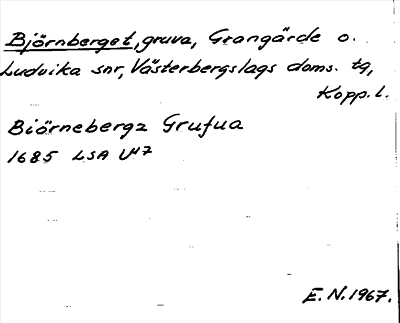 Björnberget, gruva, Grangärde o.
Ludvika snr, Västerbergslags doms. tg,
Kopp. l.
Biörnebergz Grufua
1685 LSA U¹7
E.N. 1967.